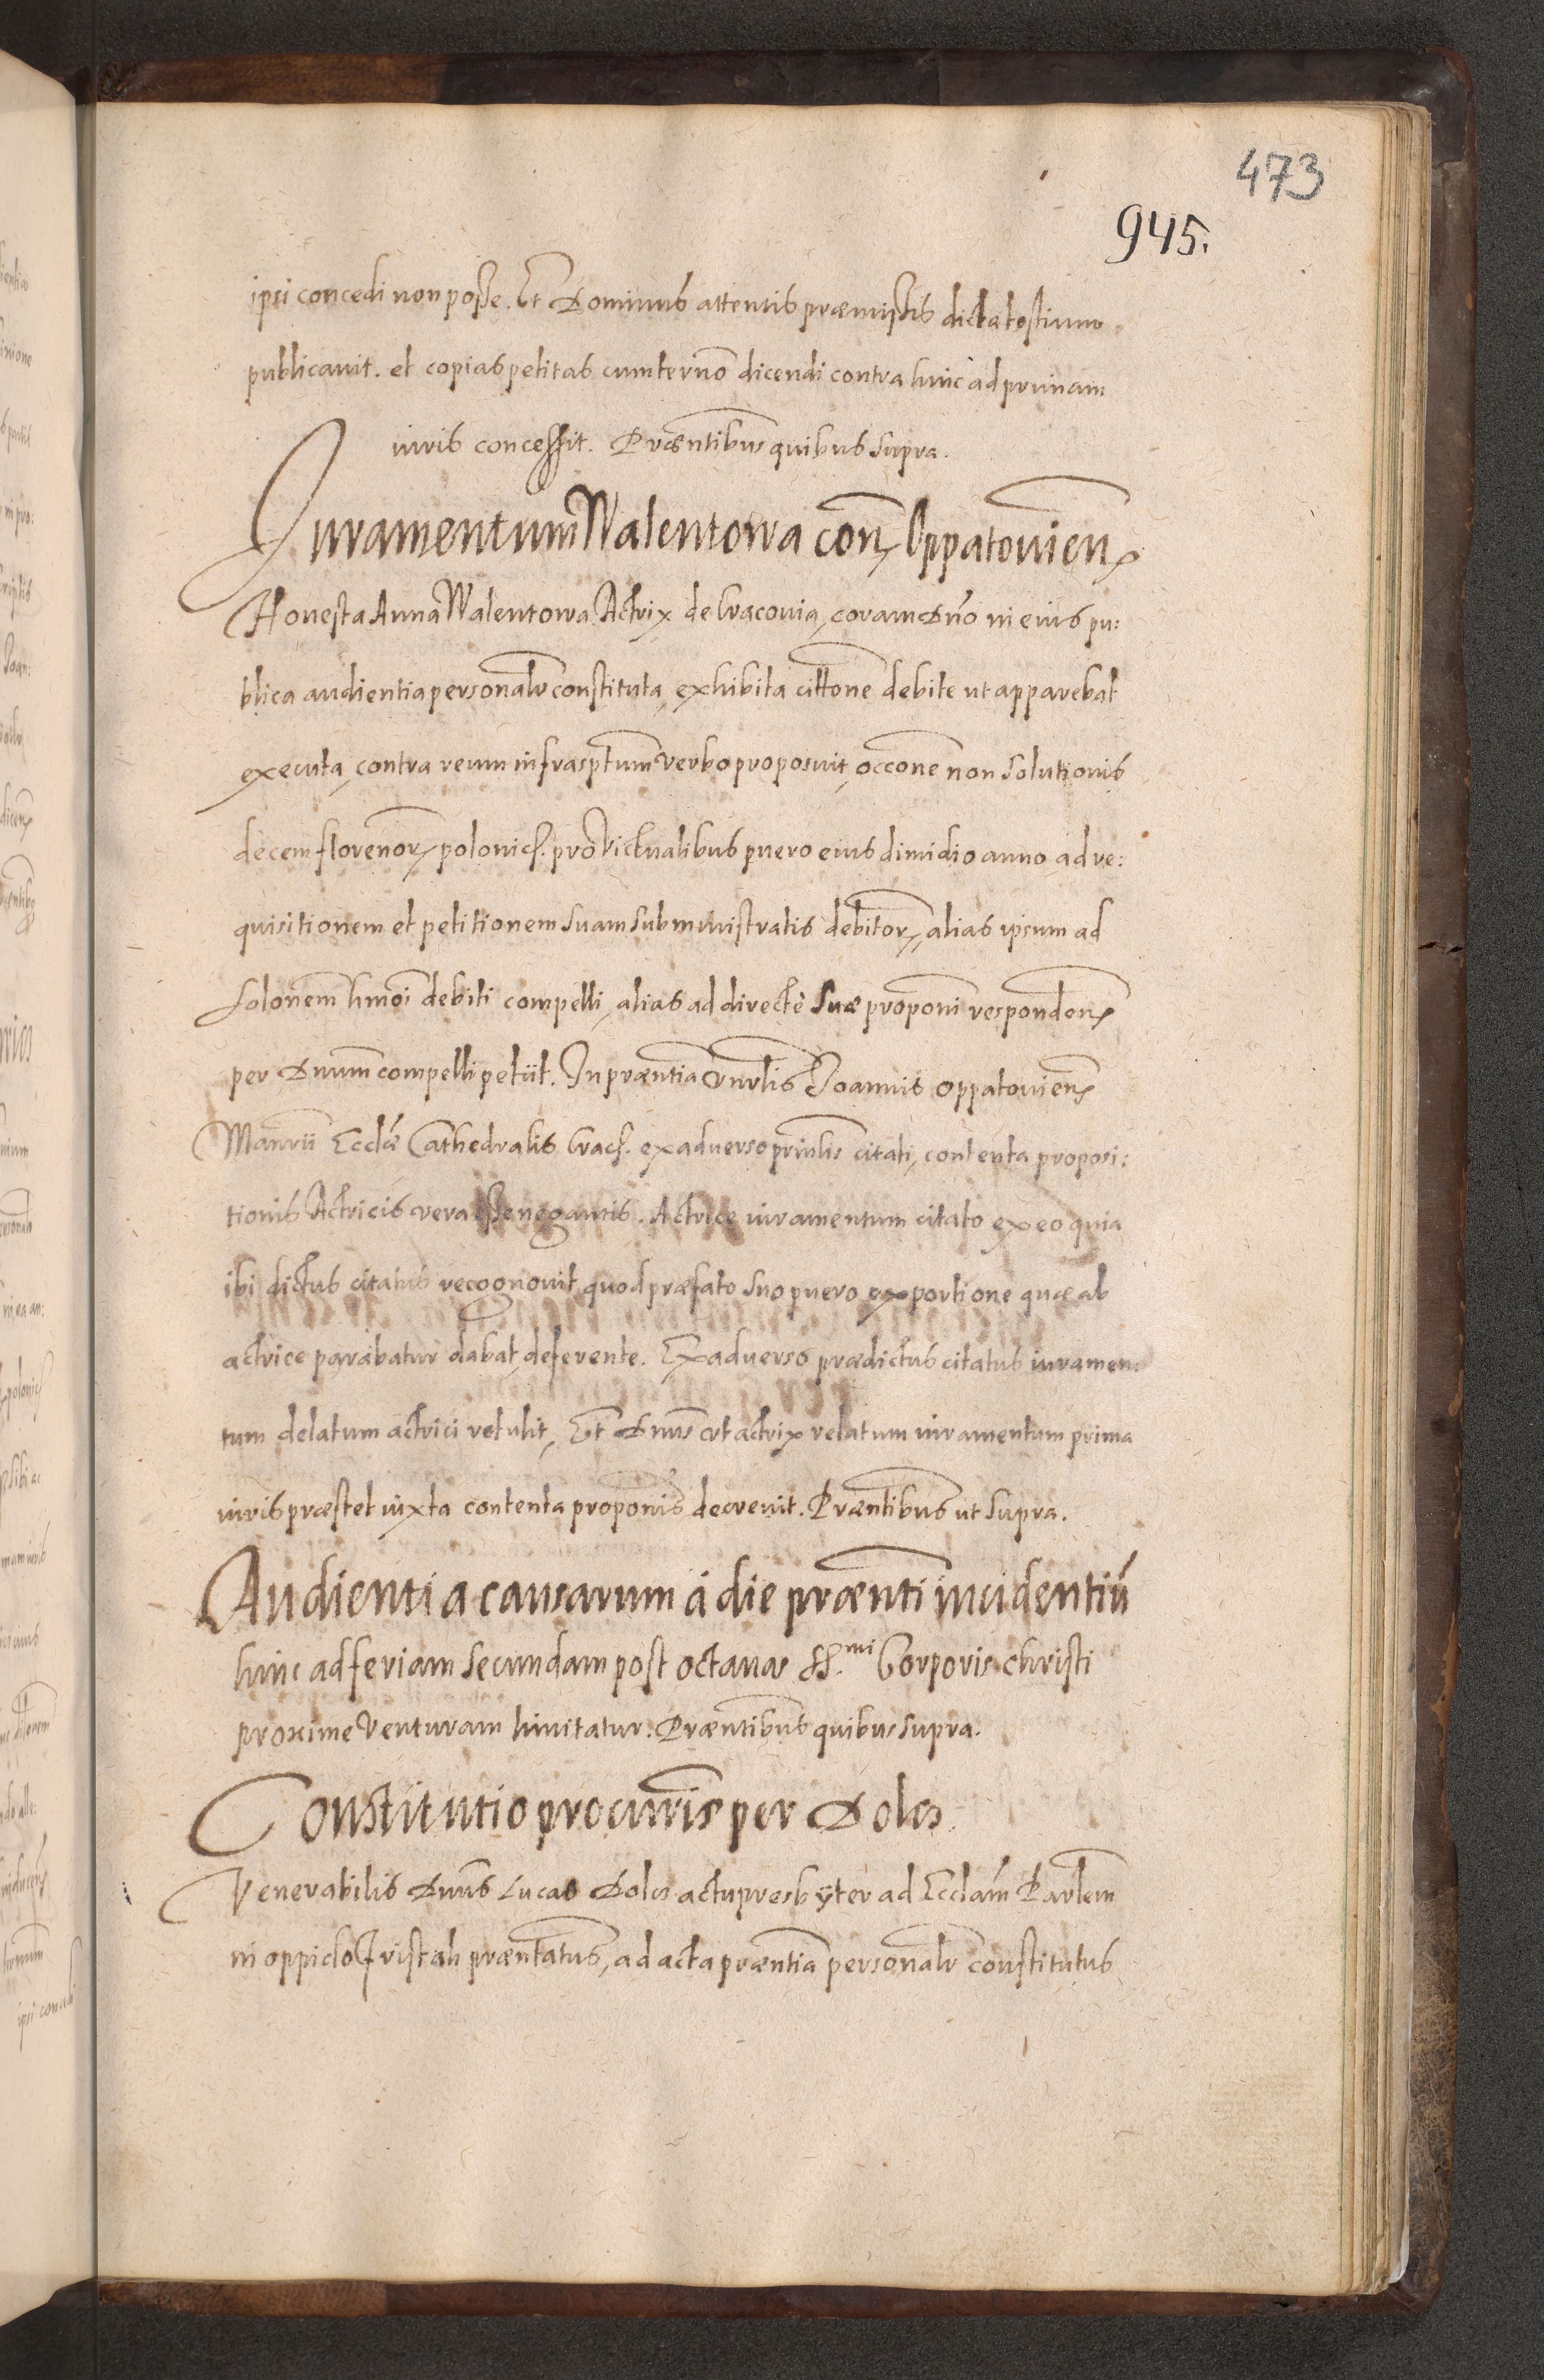 473
945.
ipsi concedi non posse. Et Dominus attentis præmissis dicta testium
publicavit. et copias petitas cum termo dicendi contra hinc ad primam
iuris concessit. Præntibus quibus supra.
Juramentum Walentowa con Oppatovien
Honesta Anna Walentowa Actrix de Cracovia, coram Dno in eius pu:
blica audientia personalr constituta, exhibita cittone debite ut apparebat
executa, contra reum infrasptum verbo proposuit, occone non solutionis
decem florenor, polonic. pro victualibus puero eius dimidio anno ad re:
quisitionem et petitionem suam subministratis debitor, alias ipsum ad
solonem hmoi debiti compelli, alias ad directe suæ proponi responden
per Dnum compelli petiit. In præntia Vnrlis Joannis Oppatovien
Manrii Ecclæ Cathedralis Crac. ex adverso prinlis citati, contenta proposi:
tionis Actricis vera esse negantis. Actrice iuramentum citato ex eo quia
ibi dictus citatus recognovit quod præfato suo puero ex portione quæ ab
actrice parabatur dabat, deferente. Ex adverso prædictus citatus iuramen:
tum delatum actrici retulit, Et Dnus ut actrix relatum iuramentum prima
iuris præstet iuxta contenta proponis decrevit. Præntibus ut supra.
Audientia causarum á die prænti incidentiu
hinc ad feriam secundam post octavas SS.mi Corporis christi
proxime venturam limitatur. Præntibus quibus supra.
Constitutio procuris per Dolos
Venerabilis Dnus Lucas Dolos actu presbyter ad Ecclam Parlem
in oppido Fristah præntatus, ad acta præntia personalr constitutus